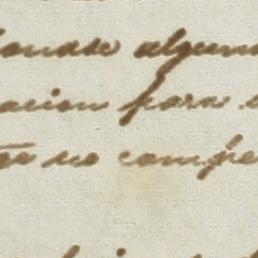 onase alguna
acion para
no compe